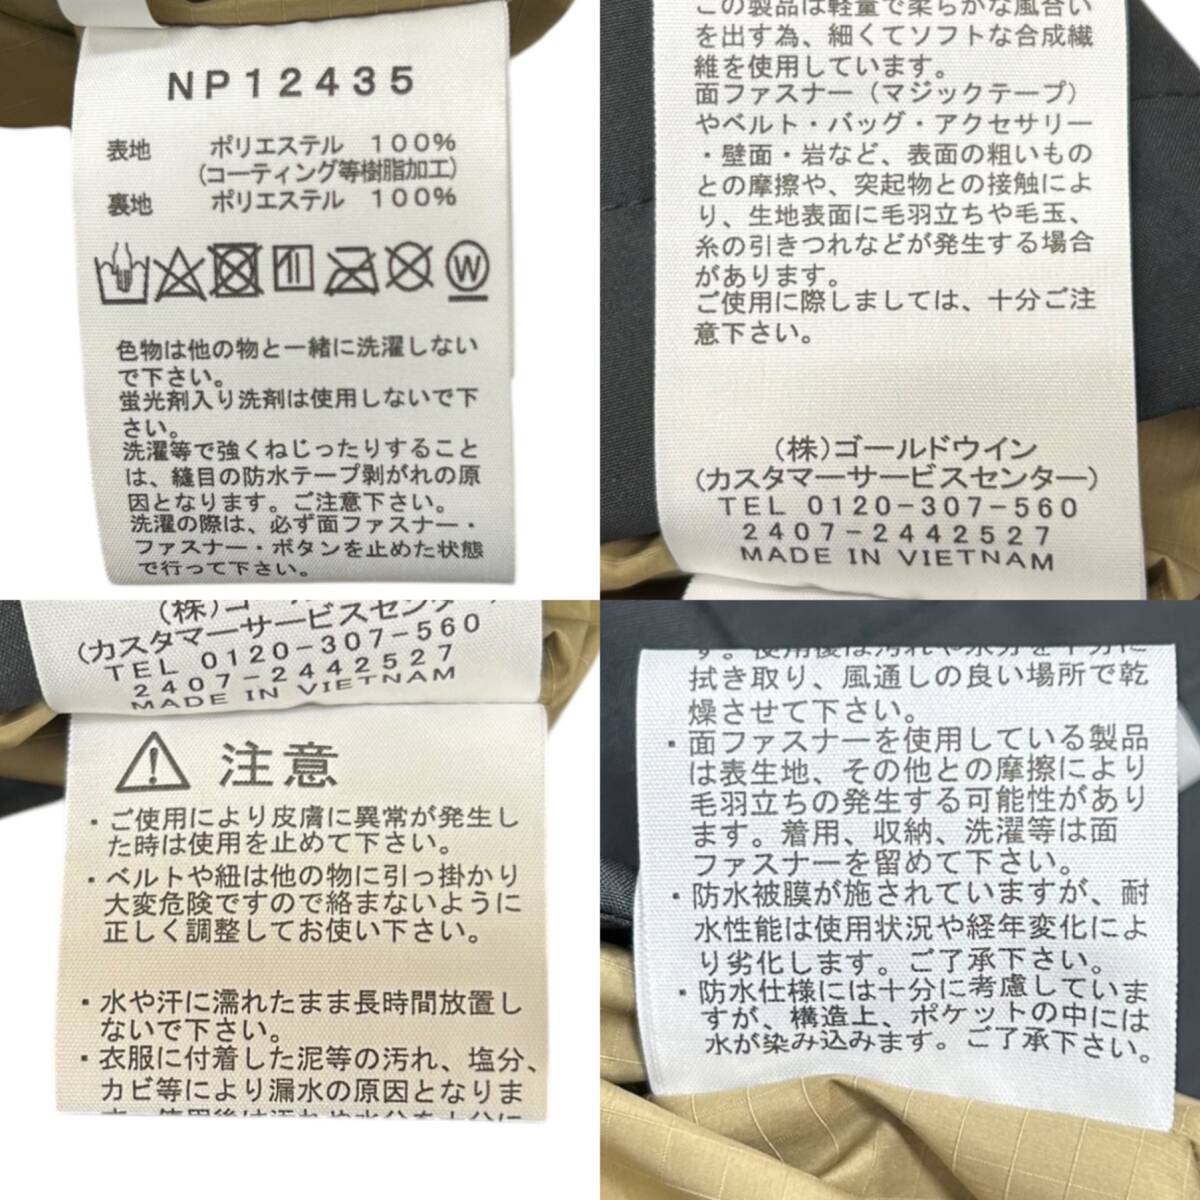 NP12435
表地 ポリエステル 100%
(コーティング等樹脂加工)
裏地 ポリエステル 100%
W
色物は他の物と一緒に洗濯しない
で下さい。
蛍光剤入り洗剤は使用しないで下
さい。
洗濯等で強くねじったりすること
は、縫目の防水テープ剥がれの原
因となります。ご注意下さい。
洗濯の際は、必ず面ファスナー・
ファスナー・ボタンを止めた状態
で行って下さい。
この製品は軽量で柔らかな風合い
を出す為、細くてソフトな合成繊
維を使用しています。
面ファスナー(マジックテープ)
やベルト・バッグ・アクセサリー
・壁面・岩など、表面の粗いもの
との摩擦や、突起物との接触によ
り、生地表面に毛羽立ちや毛玉、
糸の引きつれなどが発生する場合
があります。
ご使用に際しましては、十分ご注
意下さい。
(株)ゴールドウイン
(カスタマーサービスセンター)
TEL 0120-307-560
2407-2442527
MADE IN VIETNAM
(株)ゴー
(カスタマーサービスセンター)
TEL 0120-307-560
2407-2442527
MADE IN VIETNAM
注意
・ご使用により皮膚に異常が発生し
た時は使用を止めて下さい。
・ベルトや紐は他の物に引っ掛かり
大変危険ですので絡まないように
正しく調整してお使い下さい。
・水や汗に濡れたまま長時間放置し
ないで下さい。
・衣服に付着した泥等の汚れ、塩分、
カビ等により漏水の原因となりま
す。使用後は汚れや水分を十分に
す。使用後は汚れや水分を十分に
拭き取り、風通しの良い場所で乾
燥させて下さい。
・面ファスナーを使用している製品
は表生地、その他との摩擦により
毛羽立ちの発生する可能性があり
ます。着用、収納、洗濯等は面
ファスナーを留めて下さい。
・防水被膜が施されていますが、耐
水性能は使用状況や経年変化によ
り劣化します。ご了承下さい。
・防水仕様には十分に考慮していま
すが、構造上、ポケットの中には
水が染み込みます。ご了承下さい。